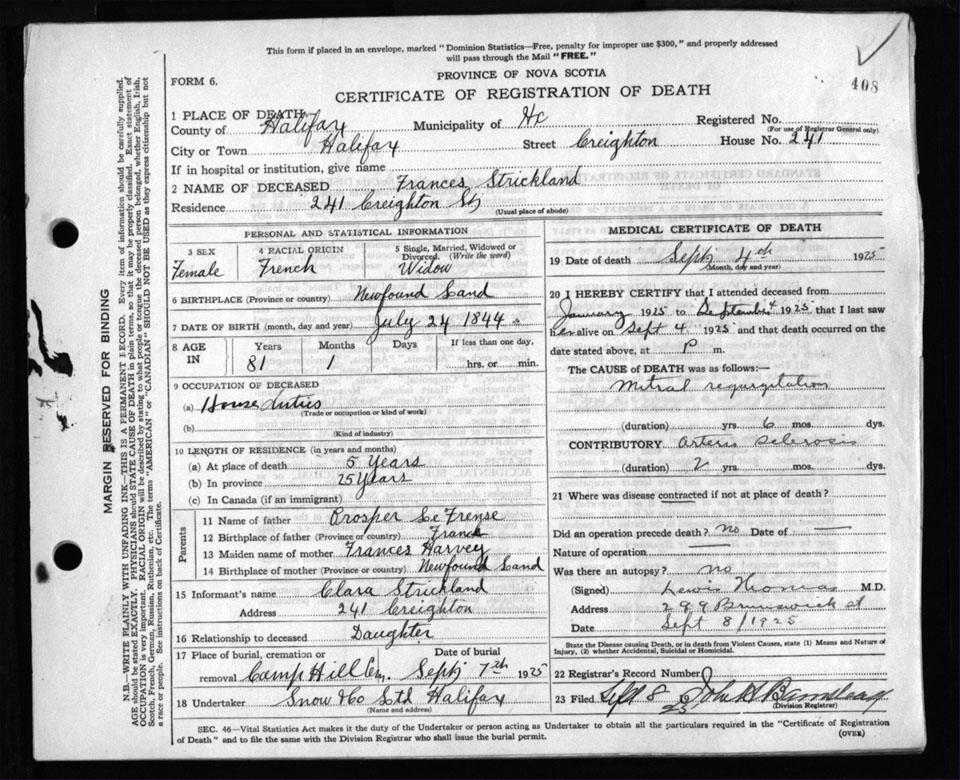 This form if placed in an envelope, marked "Dominion Statistics—Free, penalty for improper use $300," and properly addressed
will pass through the Mail "FREE."
408
FORM 6.
PROVINCE OF NOVA SCOTIA
CERTIFICATE OF REGISTRATION OF DEATH
1 PLACE OF DEATH
County of Halifax Municipality of Hx Registered No.
(For use of Registrar General only)
City or Town Halifax Street Creighton House No. 241
If in hospital or institution, give name
2 NAME OF DECEASED Frances Strickland
Residence 241 Creighton St
(Usual place of abode)
PERSONAL AND STATISTICAL INFORMATION
3 SEX Female
4 RACIAL ORIGIN French
5 Single, Married, Widowed or Divorced (Write the word) Widow
6 BIRTHPLACE (Province or country) Newfound Land
7 DATE OF BIRTH (month, day and year) July 24 1844
8 AGE IN Years 81 Months 1 Days If less than one day, hrs. or min.
9 OCCUPATION OF DECEASED
(a) House duties
(Trade or occupation or kind of work)
(b)
(Kind of industry)
10 LENGTH OF RESIDENCE (in years and months)
(a) At place of death 5 Years
(b) In province 25 Years
(c) In Canada (if an immigrant)
Parents
11 Name of father Prosper Le Frense
12 Birthplace of father (Province or country) France
13 Maiden name of mother Frances Harvey
14 Birthplace of mother (Province or country) Newfound Land
15 Informant's name Clara Strickland
Address 241 Creighton
16 Relationship to deceased Daughter
17 Place of burial, cremation or removal Camp Hill Cem. Date of burial Sept 7th 1925
18 Undertaker Snow & Co Ltd Halifax
(Name and address)
MEDICAL CERTIFICATE OF DEATH
19 Date of death Sept 4th 1925
(Month, day and year)
20 I HEREBY CERTIFY that I attended deceased from
January 1925 to September 4 1925 that I last saw
her alive on Sept 4 1925 and that death occurred on the
date stated above, at P m.
The CAUSE of DEATH was as follows:—
Mitral regurgitation
(duration) yrs. 6 mos. dys.
CONTRIBUTORY Arterio Sclerosis
(duration) 2 yrs. mos. dys.
21 Where was disease contracted if not at place of death?
Did an operation precede death? No Date of
Nature of operation
Was there an autopsy? no
(Signed) Lewis Thomas M.D.
Address 289 Brunswick st
Date Sept 8/1925
State the Disease causing Death, or in death from Violent Causes, state (1) Means and Nature of
Injury, (2) whether Accidental, Suicidal or Homicidal.
22 Registrar's Record Number
23 Filed Sept 8 25 John H
(Division Registrar)
SEC. 46—Vital Statistics Act makes it the duty of the Undertaker or person acting as Undertaker to obtain all the particulars required in the "Certificate of Registration
of Death" and to file the same with the Division Registrar who shall issue the burial permit.
(OVER)
MARGIN RESERVED FOR BINDING
N.B.—WRITE PLAINLY WITH UNFADING INK—THIS IS A PERMANENT RECORD. Every item of information should be carefully supplied.
AGE should be stated EXACTLY. PHYSICIANS should STATE CAUSE OF DEATH in plain terms, so that it may be properly classified. Exact statement of
OCCUPATION is very important. RACIAL ORIGIN will be described by stating to what people or tongue the deceased person belonged, whether English, Irish,
Scotch, French, German, Russian, Ruthenian, etc. The terms "AMERICAN" or "CANADIAN" SHOULD NOT BE USED as they express citizenship but not
a race or people. See instructions on back of Certificate.